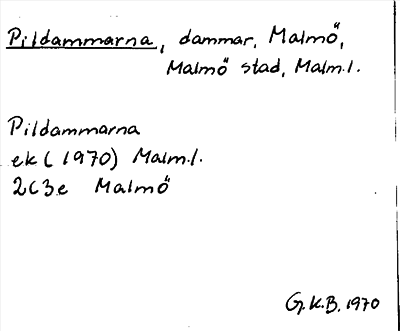 Pildammarna, dammar, Malmö,
Malmö stad, Malm.l.
Pildammarna
ek (1970) Malm.l.
2C3e Malmö
G.K.B. 1970